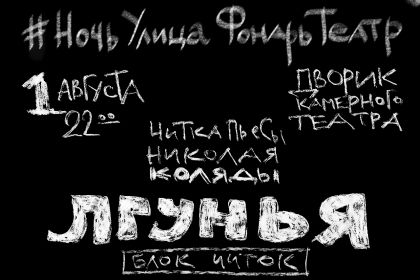 #НочьУлицаФонарьТеатр
1 АВГУСТА
22 00
ДВОРИК
КАМЕРНОГО
ТЕАТРА
ЧИТКА ПЬЕСЫ
НИКОЛАЯ
КОЛЯДЫ
ЛГУНЬЯ
БЛОК ЧИТОК